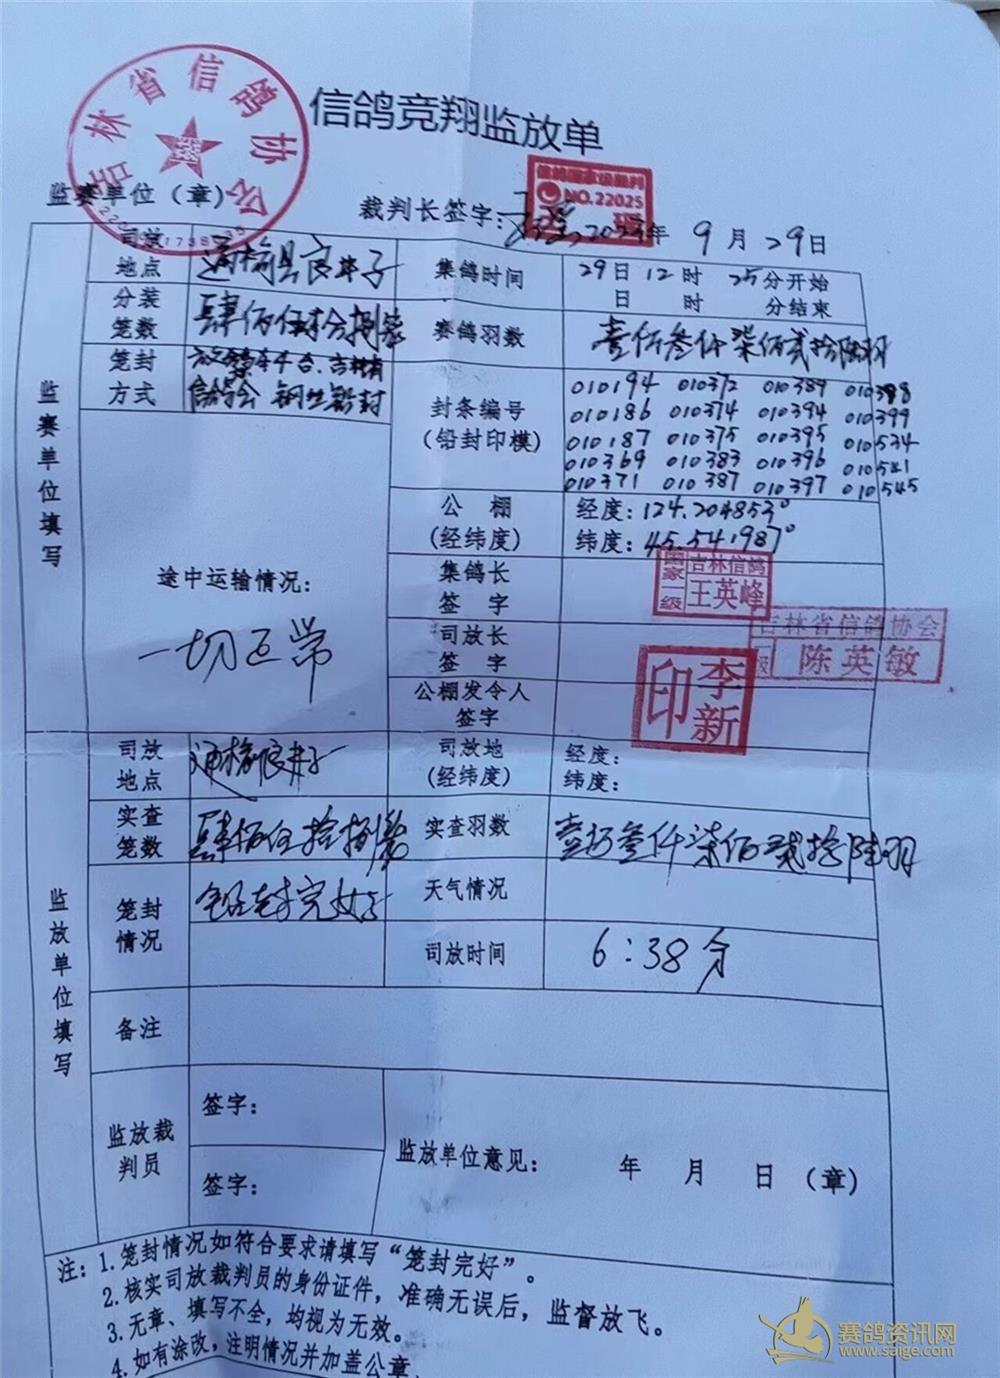 信鸽竞翔监放单
吉林省信鸽协会
监赛单位（章）
裁判长签字：
NO.22025
2023年9月29日
监赛单位填写
司放地点
通榆县良井子
集鸽时间
29日12时25分开始
日 时 分结束
分装笼数
肆佰伍拾捌笼
赛鸽羽数
壹万叁仟柒佰贰拾陆羽
笼封方式
信鸽协会 钢丝铅封
封条编号
（铅封印模）
010194 010372 010389 010398
010186 010374 010394 010399
010187 010375 010395 010534
010369 010383 010396 010541
010371 010387 010397 010545
途中运输情况：
一切正常
公棚
（经纬度）
经度：124.204853°
纬度：45.541987°
集鸽长
签字
国家一级
吉林信鸽
王英峰
司放长
签字
吉林省信鸽协会
级
陈英敏
公棚发令人
签字
李新印
监放单位填写
司放地点
通榆良井子
司放地
（经纬度）
经度：
纬度：
实查笼数
肆佰伍拾捌笼
实查羽数
壹万叁仟柒佰贰拾陆羽
笼封情况
铅封完好
天气情况
司放时间
6:38分
备注
监放裁判员
签字：
签字：
监放单位意见：
年 月 日（章）
注：1.笼封情况如符合要求请填写“笼封完好”。
2.核实司放裁判员的身份证件，准确无误后，监督放飞。
3.无章、填写不全，均视为无效。
4.如有涂改，注明情况并加盖公章。
赛鸽资讯网
www.saige.com